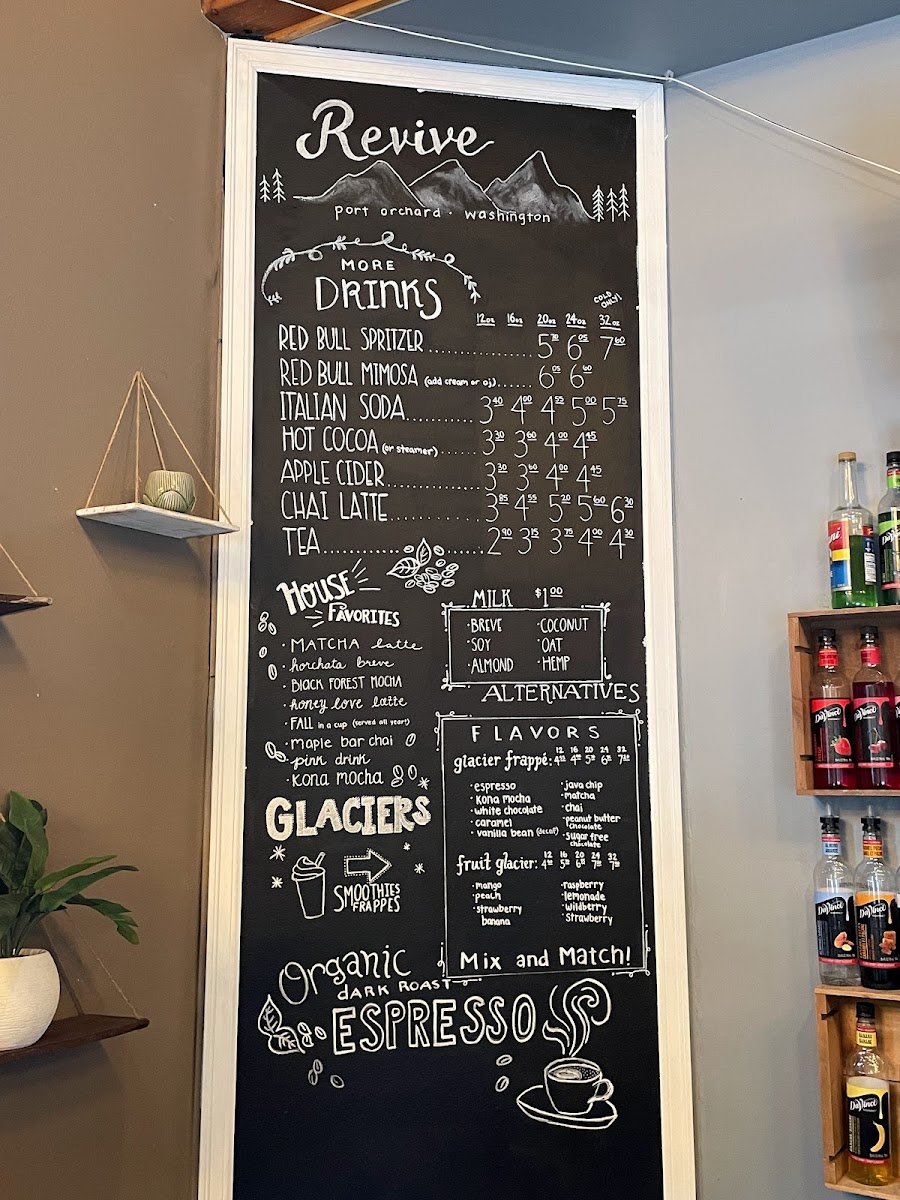 Revive
port orchard · washington
MORE
DRINKS
COLD ONLY!
12oz 16oz 20oz 24oz 32oz
RED BULL SPRITZER 6.05 7.60
RED BULL MIMOSA (add cream or oj) 6.05
ITALIAN SODA 3.40 4.00 4.55 5.00 5.75
HOT COCOA (or steamer) 3.30 3.60 4.00 4.45
APPLE CIDER 3.30 3.60 4.00 4.45
CHAI LATTE 3.85 4.55 5.20 5.60 6.30
TEA 2.90 3.15 3.75 4.00 4.30
HOUSE
FAVORITES
· MATCHA latte
· horchata breve
· BLACK FOREST MOCHA
· honey love latte
· FALL in a cup (served all year!)
· maple bar chai
· pink drink
· kona mocha
MILK $1.00
· BREVE · COCONUT
· SOY · OAT
· ALMOND · HEMP
ALTERNATIVES
FLAVORS
12 16 20 24 32
glacier frappé:
· espresso · java chip
· kona mocha · matcha
· white chocolate · chai
· caramel · peanut butter chocolate
· vanilla bean (decaf) · sugar free chocolate
12 16 20 24 32
fruit glacier:
· mango · raspberry
· peach · lemonade
· strawberry banana · wildberry
· strawberry
Mix and Match!
GLACIERS
SMOOTHIES
FRAPPES
Organic
DARK ROAST
ESPRESSO
DaVinci
DaVinci
DaVinci
DaVinci
DaVinci